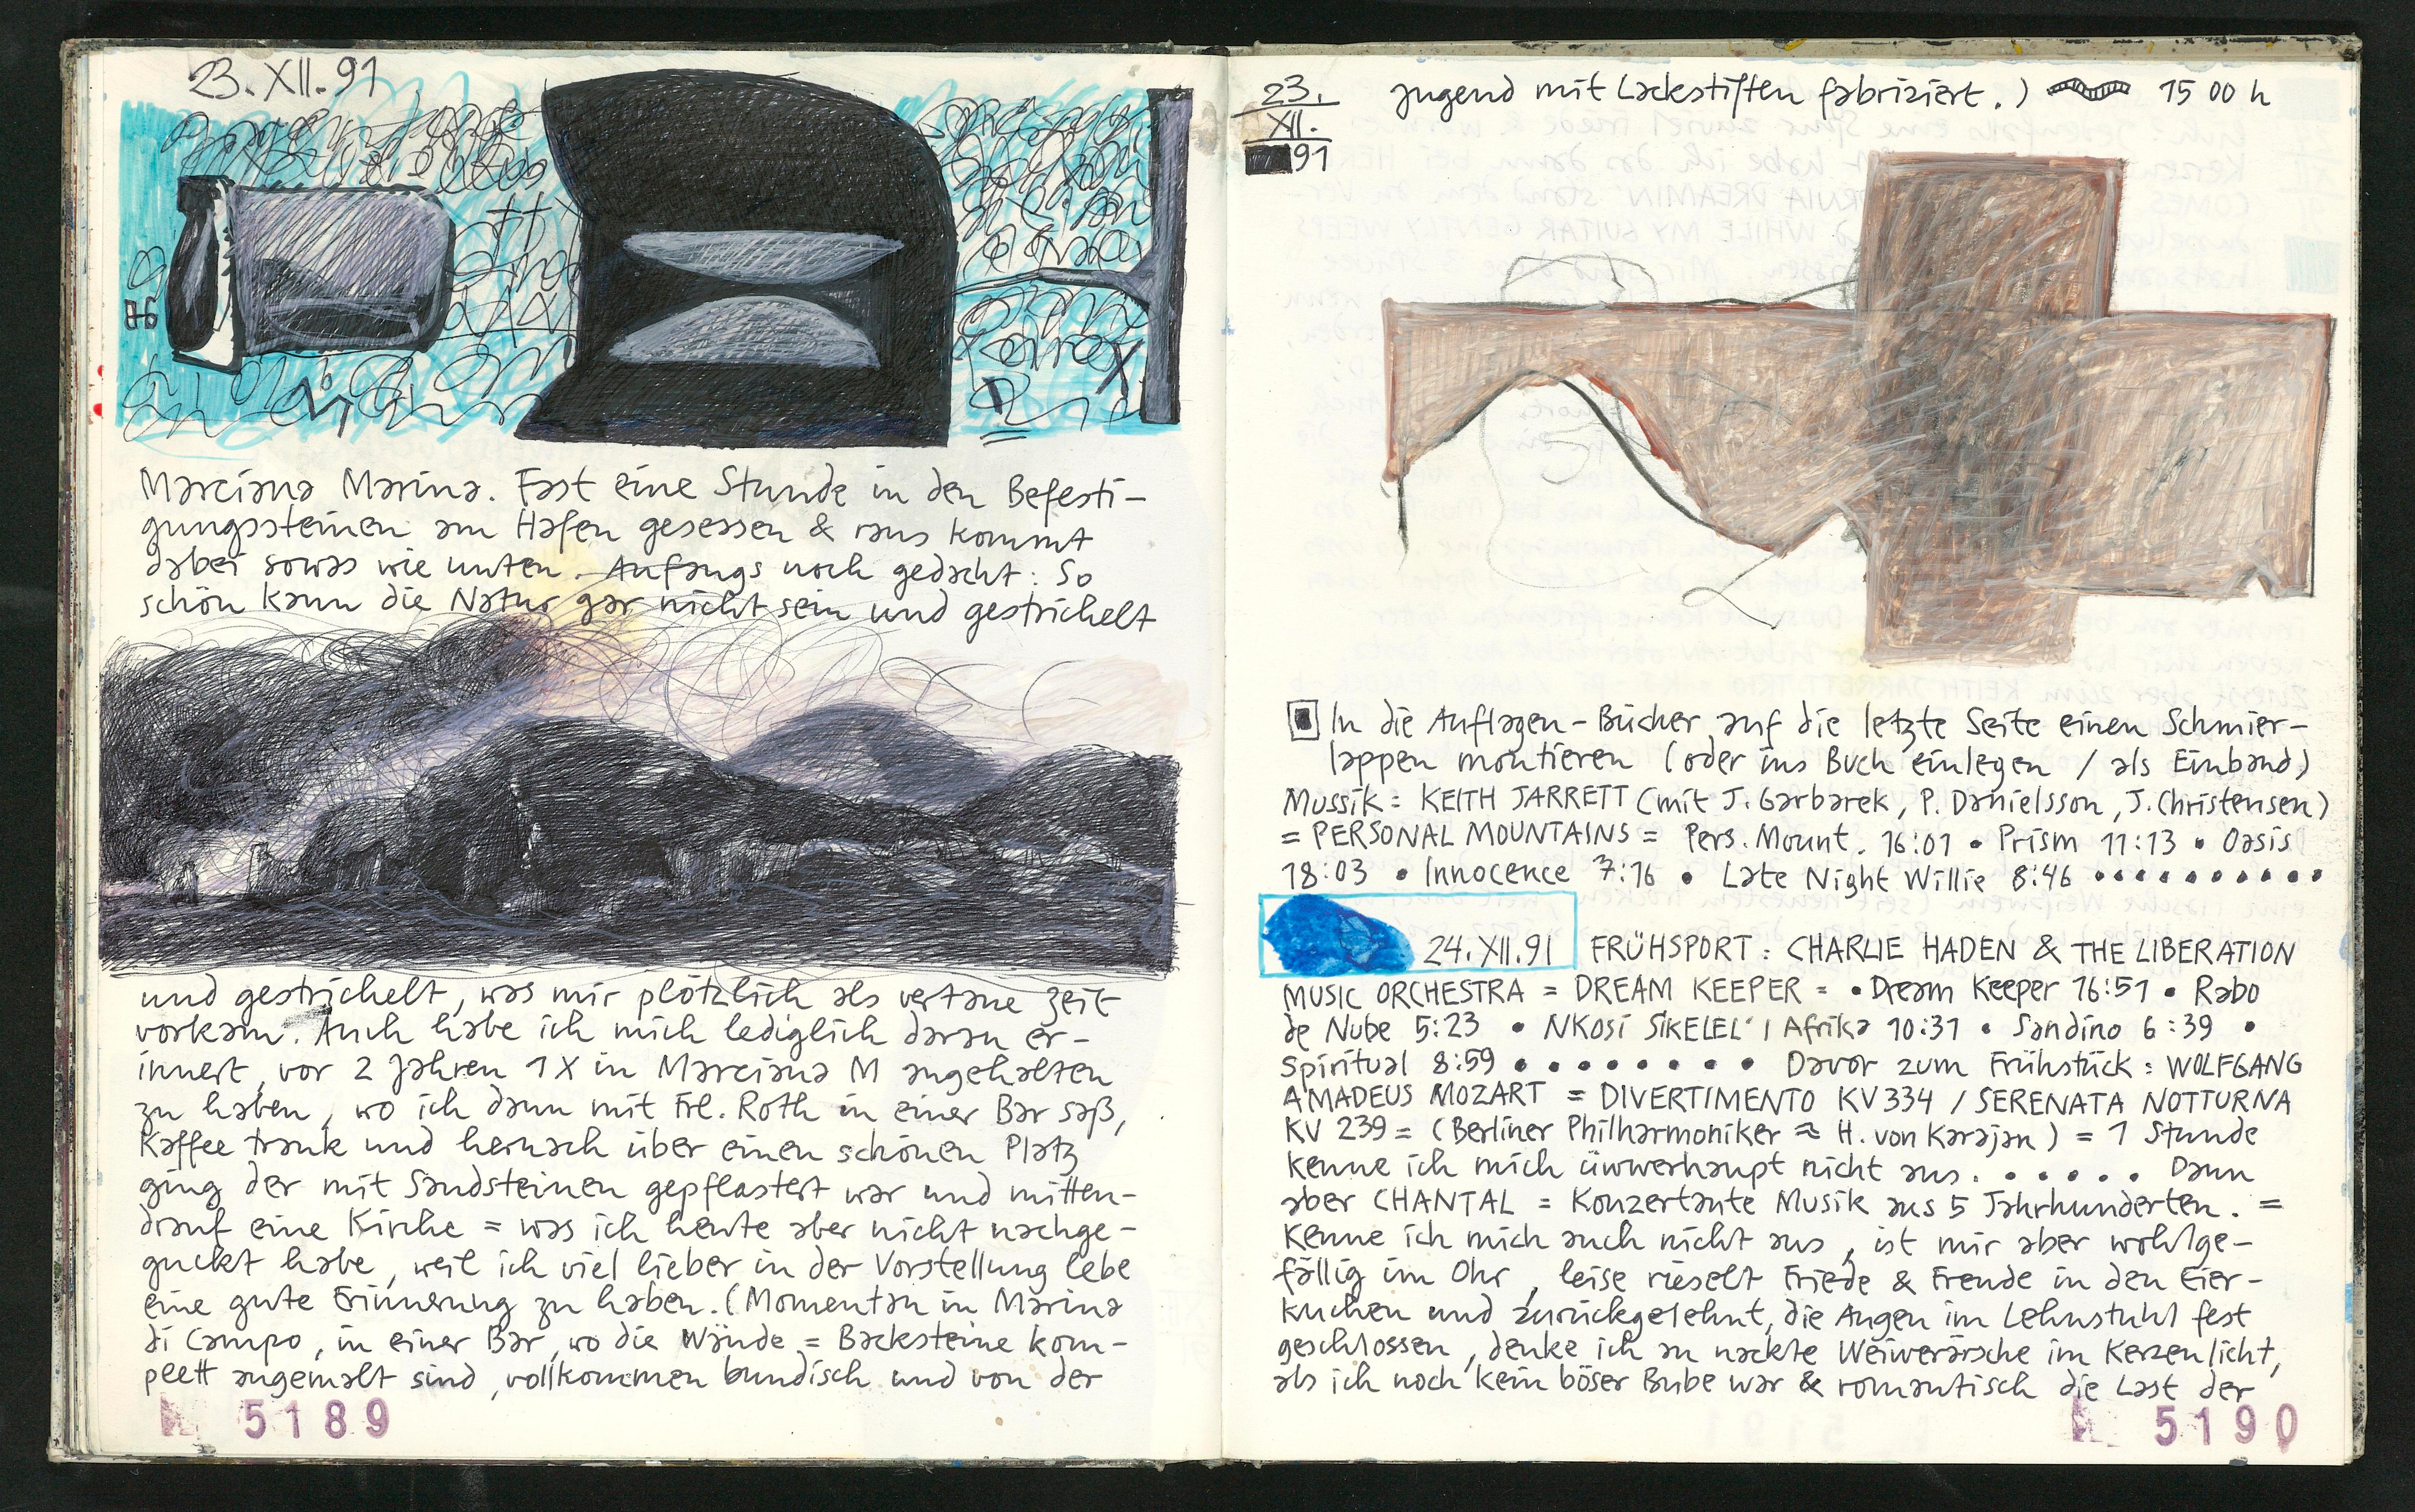 23.XII.91
Marciana Marina. Fast eine Stunde in den Befesti-
gungssteinen am Hafen gesessen & raus kommt
dabei sowas wie unten. Anfangs noch gedacht: So
schön kann die Natur gar nicht sein und gestrichelt
und gestrichelt, was mir plötzlich als vertane Zeit
vorkam. Auch habe ich mich lediglich daran er-
innert, vor 2 Jahren 1X in Marciana M angehalten
zu haben, wo ich dann mit Frl. Roth in einer Bar saß,
Kaffee trank und hernach über einen schönen Platz
ging der mit Sandsteinen gepflastert war und mitten-
drauf eine Kirche = was ich heute aber nicht nachge-
guckt habe, weil ich viel lieber in der Vorstellung lebe
eine gute Erinnerung zu haben. (Momentan in Marina
di Campo, in einer Bar, wo die Wände = Backsteine kom-
plett angemalt sind, vollkommen bundisch und von der
5189
23.
XII.
91
Jugend mit Lackstiften fabriziert.) 15 00 h
In die Auflagen-Bücher auf die letzte Seite einen Schmier-
lappen montieren (oder ins Buch einlegen / als Einband)
Mussik = KEITH JARRETT (mit J. Garbarek, P. Danielsson, J. Christensen)
= PERSONAL MOUNTAINS = Pers. Mount. 16:01 • Prism 11:13 • Oasis
18:03 • Innocence 7:16 • Late Night Willie 8:46 • • • • • • • • • •
24.XII.91 FRÜHSPORT: CHARLIE HADEN & THE LIBERATION
MUSIC ORCHESTRA = DREAM KEEPER = • Dream Keeper 16:51 • Rabo
de Nube 5:23 • NKOSI SIKELEL' I Afrika 10:31 • Sandino 6:39 •
Spiritual 8:59 • • • • • • • • Davor zum Frühstück: WOLFGANG
AMADEUS MOZART = DIVERTIMENTO KV334 / SERENATA NOTTURNA
KV 239 = (Berliner Philharmoniker ≈ H. von Karajan) = 1 Stunde
Kenne ich mich üwwerhaupt nicht aus. • • • • • Dann
aber CHANTAL = Konzertante Musik aus 5 Jahrhunderten. =
Kenne ich mich auch nicht aus, ist mir aber wohlge-
fällig im Ohr, leise rieselt Friede & Freude in den Eier-
kuchen und zurückgelehnt, die Augen im Lehnstuhl fest
geschlossen, denke ich an nackte Weiwerärsche im Kerzenlicht,
als ich noch kein böser Bube war & romantisch die Last der
5190